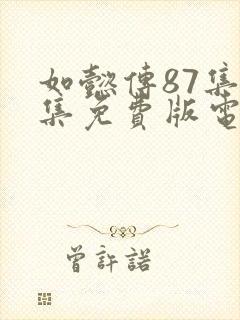 如懿傳87集
集免費版電
曾許諾